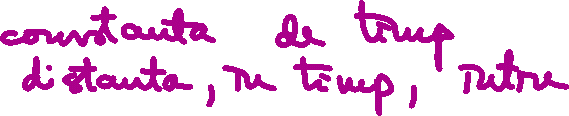 constanta de timp
distanta, in timp, intre